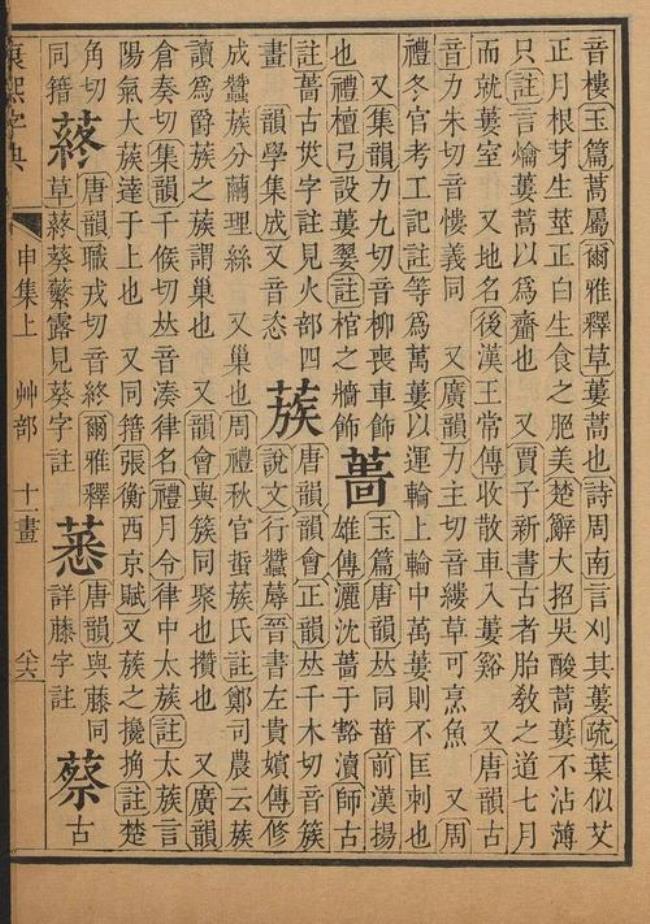 音樓玉篇蒿屬爾雅釋草蔞蒿也詩周南言刈其蔞疏葉似艾
正月根芽生莖正白生食之肥美楚辭大招吳酸蒿蔞不沾薄
只註言爚蔞蒿以爲齏也 又賈子新書古者胎敎之道七月
而就蔞室 又地名後漢王常傳收散車入蔞谿 又唐韻古
音力朱切音慺義同 又廣韻力主切音縷草可烹魚 又周
禮冬官考工記註等爲萬蔞以運輪上輪中萬蔞則不匡刺也
又集韻力九切音柳喪車飾
也禮檀弓設蔞翣註棺之牆飾
玉篇唐韻𠀤同菑前漢揚
雄傳灑沈于豁瀆師古
註古烖字註見火部四
畫 韻學集成又音恣
蔟
唐韻韻會正韻𠀤千木切音簇
說文行蠶蓐晉書左貴嬪傳修
成蠶蔟分繭理絲 又巢也周禮秋官硩蔟氏註鄭司農云蔟
讀爲爵蔟之蔟謂巢也 又韻會與簇同聚也攢也 又廣韻
倉奏切集韻千候切𠀤音湊律名禮月令律中太蔟註太蔟言
陽氣大蔟達于上也 又同籍張衡西京賦叉蔟之攙捔註楚
角切
同籍
蔠
唐韻職戎切音終爾雅釋
草蔠葵蘩露見葵字註
唐韻與藤同
詳藤字註
蔡
古
康熙字典 申集上 艸部 十一畫